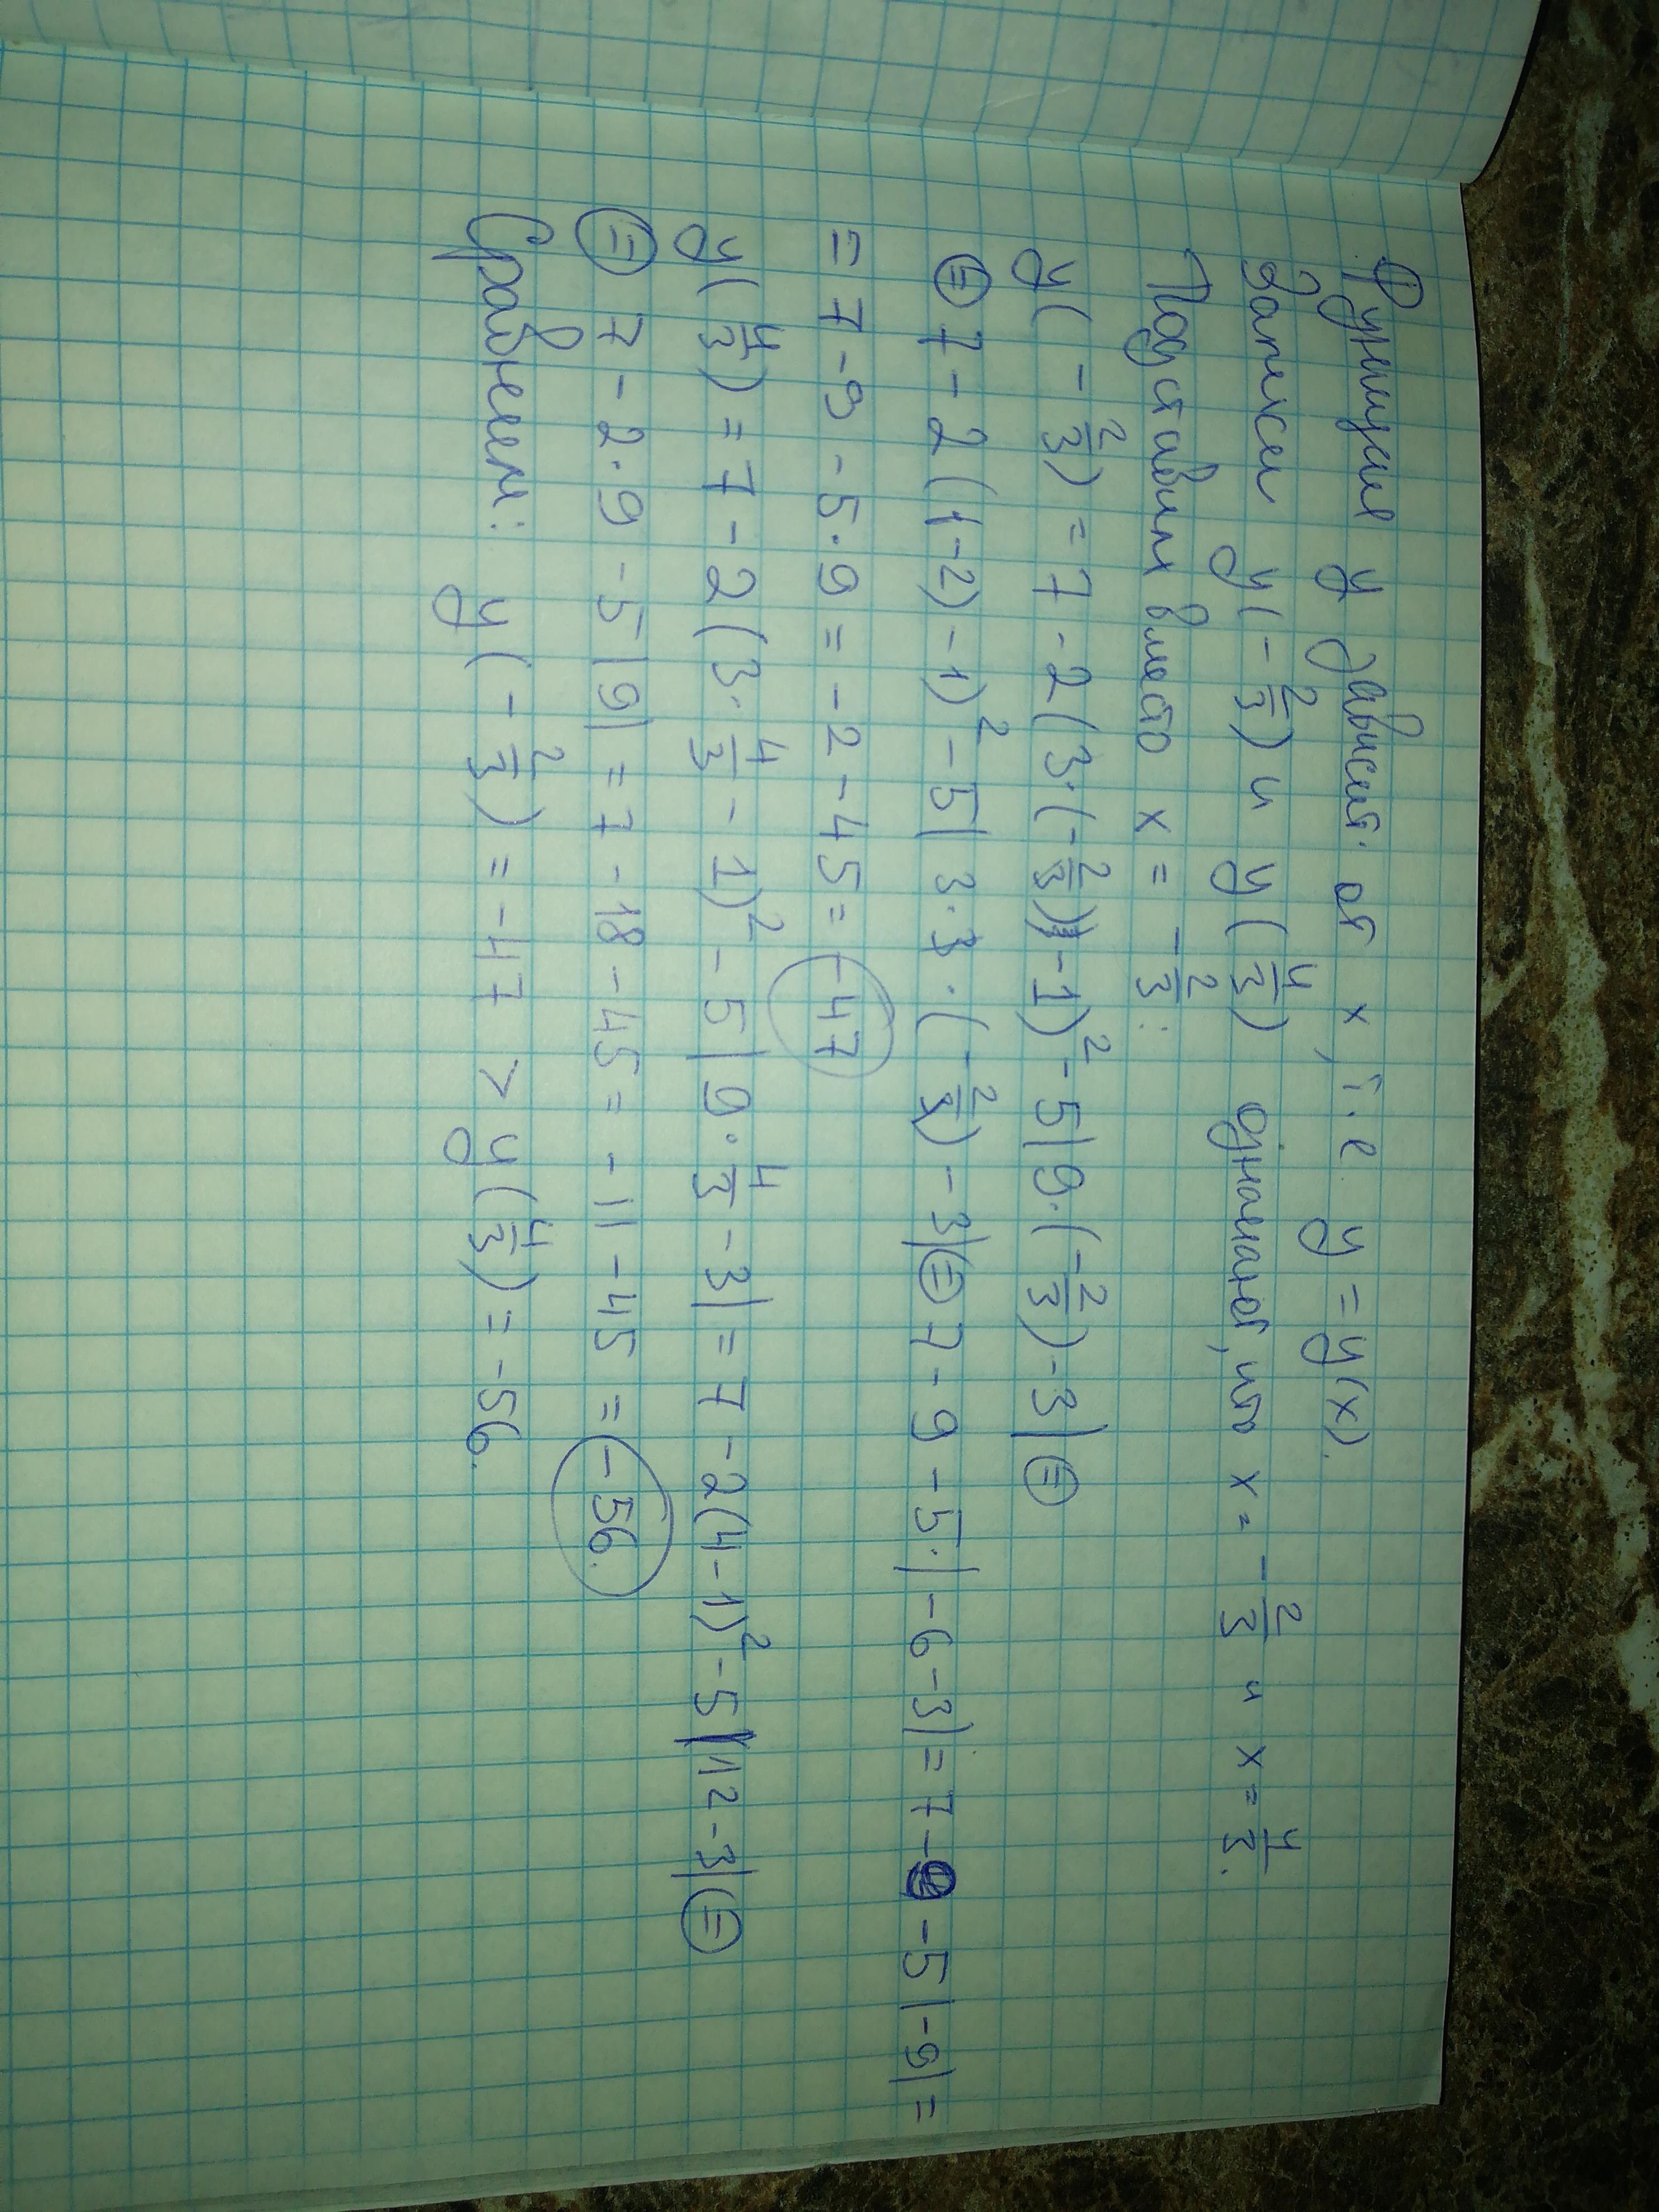 Функция y зависит от x, т.е y = y(x).
Записи y(-2/3) и y(4/3) означают, что x = -2/3 и x = 4/3.
Подставим вместо x = -2/3:
y(-2/3) = 7 - 2(3·(-2/3) - 1)² - 5|9·(-2/3) - 3| =
= 7 - 2((-2) - 1)² - 5|3·3·(-2/3) - 3| = 7 - 9 - 5·|-6 - 3| = 7 - 9 - 5|-9| =
= 7 - 9 - 5·9 = -2 - 45 = -47
y(4/3) = 7 - 2(3·4/3 - 1)² - 5|9·4/3 - 3| = 7 - 2(4 - 1)² - 5|12 - 3| =
= 7 - 2·9 - 5|9| = 7 - 18 - 45 = -11 - 45 = -56.
Сравнением: y(-2/3) = -47 > y(4/3) = -56.